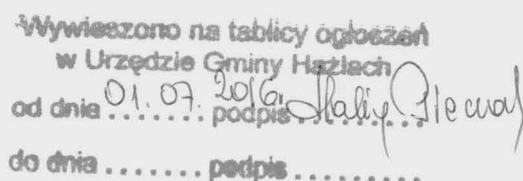 Wywieszono na tablicy ogłoszeń
w Urzędzie Gminy Hażlach
od dnia 01.07.2016r. podpis
do dnia ....... podpis ..........